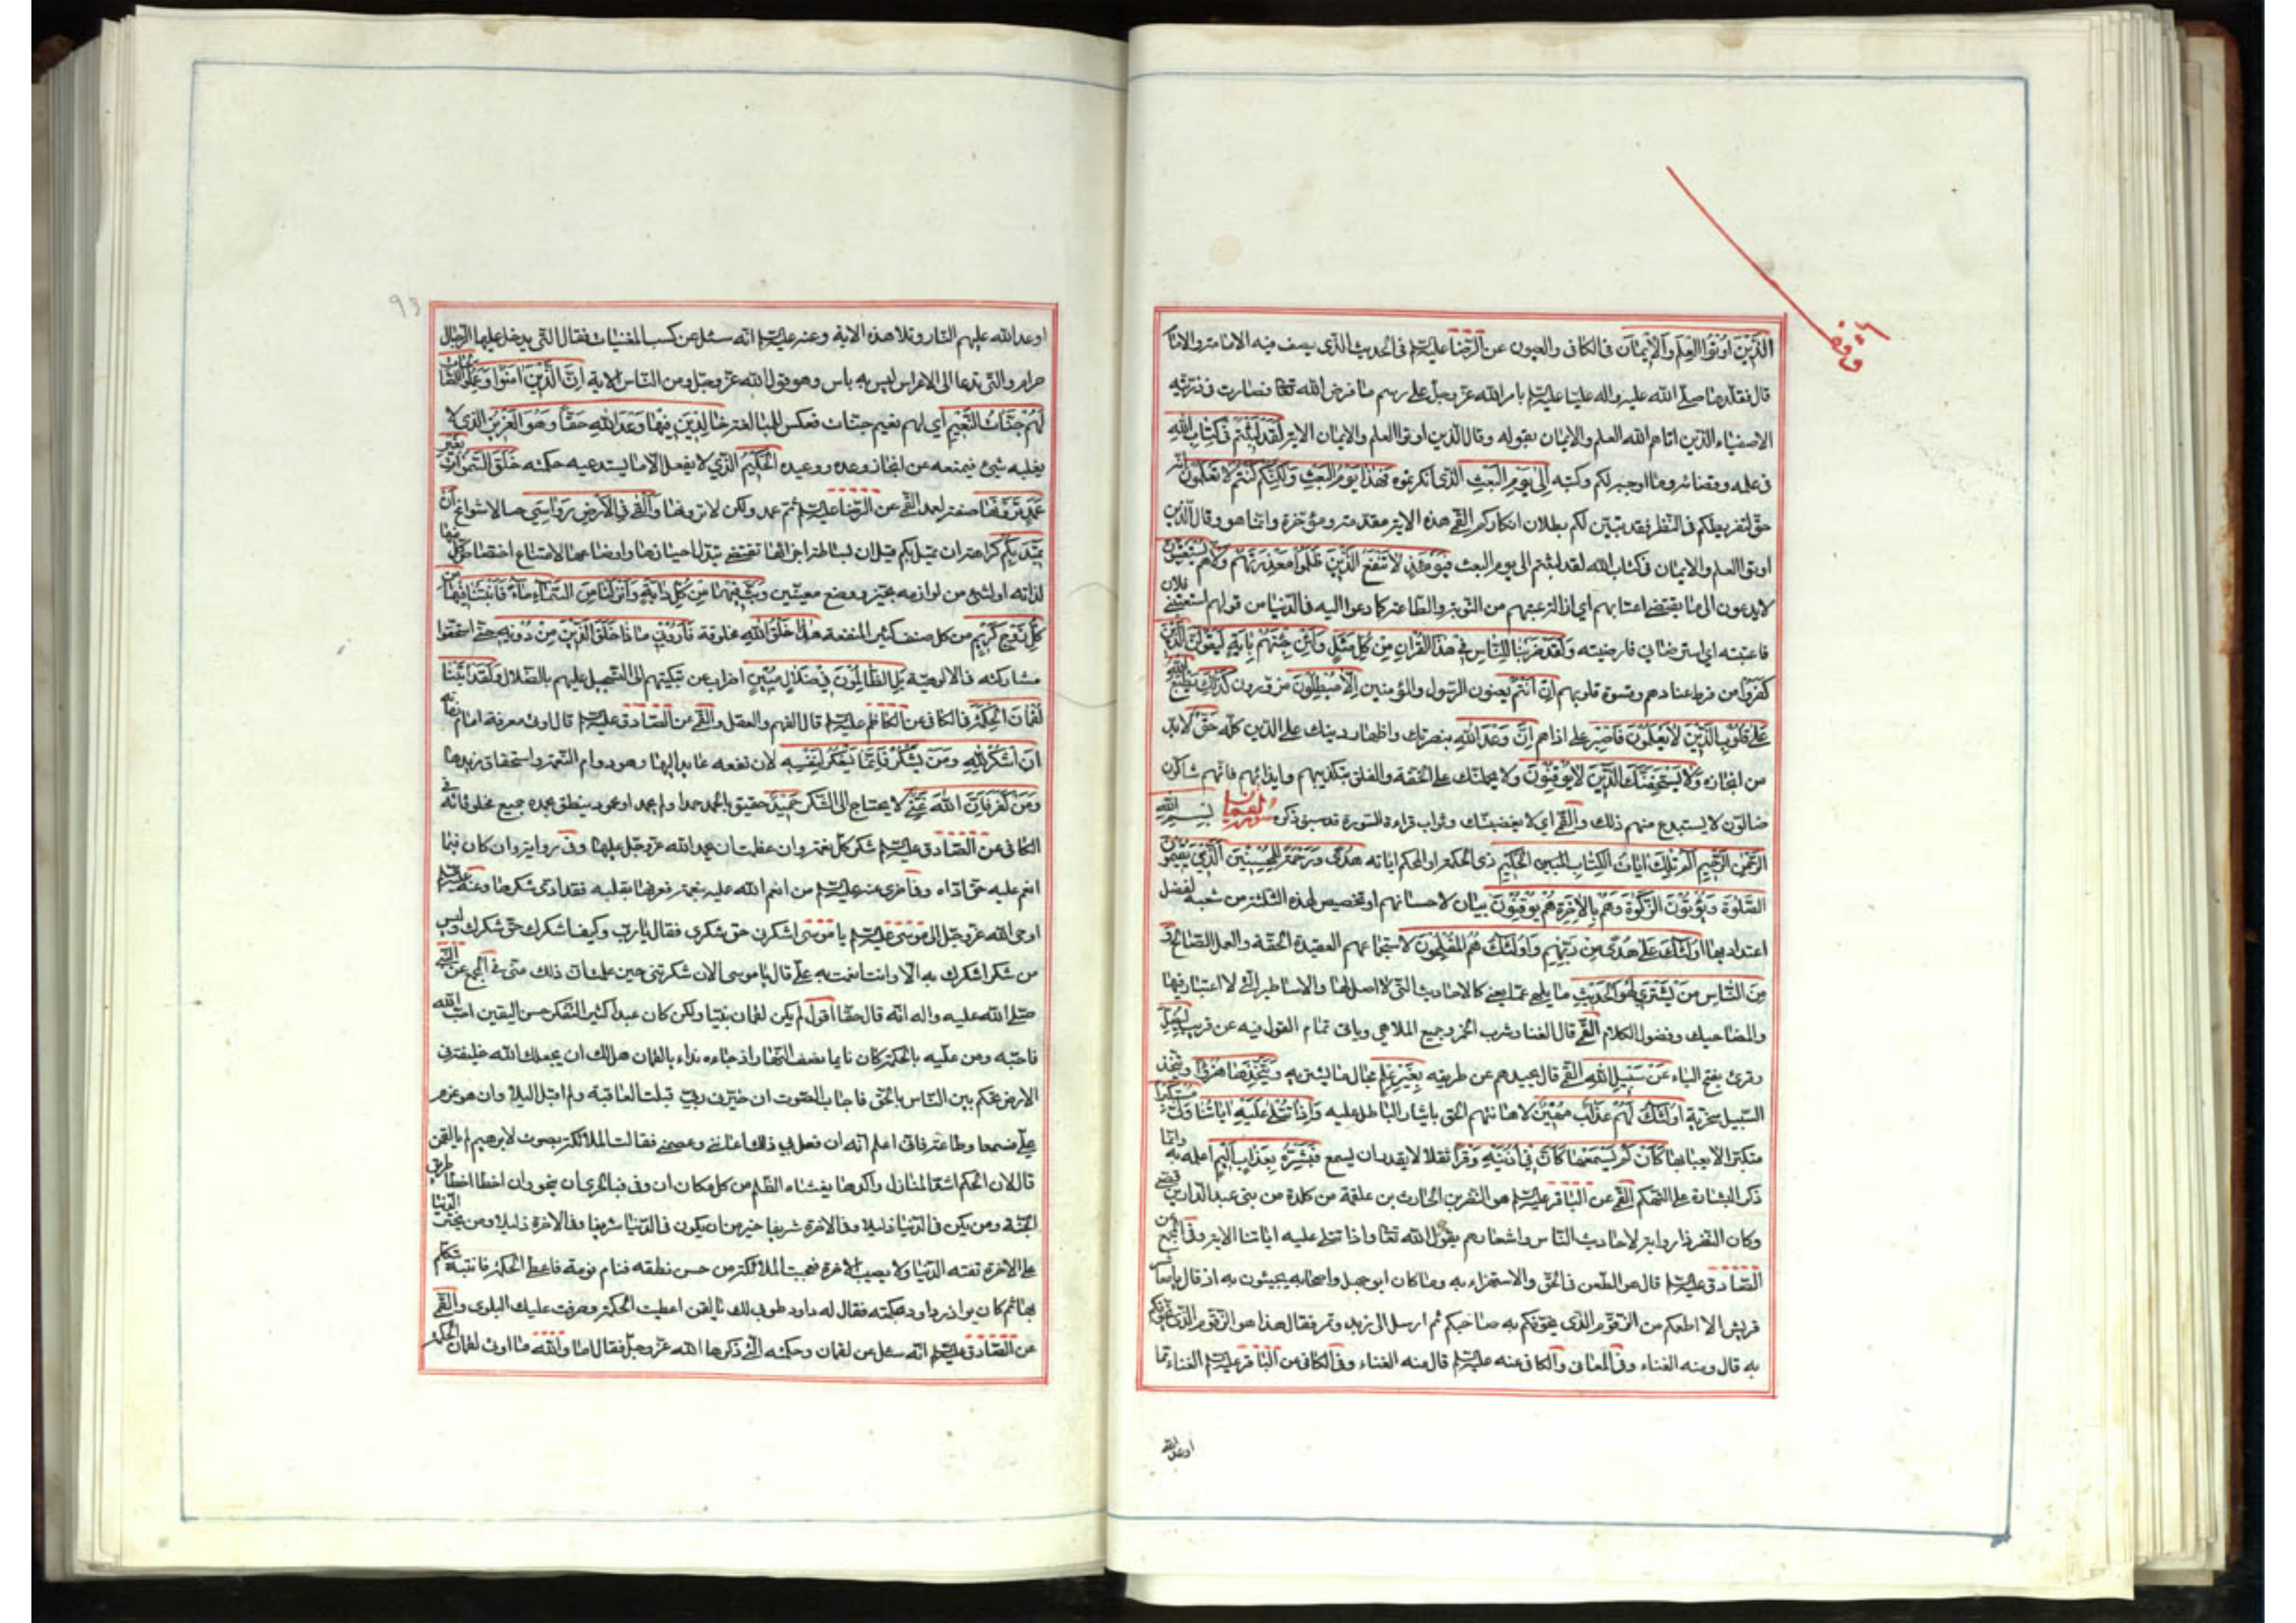 الَّذِينَ اُوتُوا الْعِلْمَ وَالْاِيمَانَ فى الكافى والعيون عن الرّضا عليه السلم فى الحديث الذى يصف فيه الامامة والامام
قال فقلّدها صلّى الله عليه واله عليّا عليه السلم بامر الله عزّ وجلّ على رسم ما فرض الله تعا فصارت فى ذرّيته
الاصفياء الذين اتاهم الله العلم والايمان بقوله وقال الذين اوتوا العلم والايمان الاية لَقَدْ لَبِثْتُمْ فى كِتَابِ اللهِ
فى علمه وقضائه وما اوجبه لكم وكتبه اِلى يَوْمِ الْبَعْثِ الذى انكرتموه فَهٰذَا يَوْمُ الْبَعْثِ وَلٰكِنَّكُمْ كُنْتُمْ لَا تَعْلَمُونَ انّه
حقّ لتفريطكم فى النظر فقد تبيّن لكم بطلان انكاركم القمّى هذه الاية مقدّمة ومؤخّرة وانما هو وقال الذين
اوتوا العلم والايمان فى كتاب الله لقد لبثتم الى يوم البعث فَيَوْمَئِذٍ لَا تَنْفَعُ الَّذِينَ ظَلَمُوا مَعْذِرَتُهُمْ وَلَا هُمْ يُسْتَعْتَبُونَ
لا يدعون الى ما يقتضى اعتابهم اى ازالة عتبهم من التوبة والطاعة كما دعوا اليه فى الدّنيا من قولهم استعتبنى فلان
فاعتبته اى استرضانى فارضيته وَلَقَدْ ضَرَبْنَا لِلنَّاسِ فى هٰذَا الْقُرْانِ مِنْ كُلِّ مَثَلٍ وَلَئِنْ جِئْتَهُمْ بِايَةٍ لَيَقُولَنَّ الَّذِينَ
كَفَرُوا من فرط عنادهم وقسوة قلوبهم اِنْ اَنْتُمْ يعنون الرّسول والمؤمنين اِلَّا مُبْطِلُونَ مزوّرون كَذٰلِكَ يَطْبَعُ اللهُ
عَلى قُلُوبِ الَّذِينَ لَا يَعْلَمُونَ فَاصْبِرْ على اذاهم اِنَّ وَعْدَ اللهِ بنصرتك واظهار دينك على الدين كلّه حَقٌّ لا بدّ
من انجازه وَلَا يَسْتَخِفَّنَّكَ الَّذِينَ لَا يُوقِنُونَ ولا يحملنّك على الخفّة والقلق بتكذيبهم وايذائهم فانهم شاكّون
ضالّون لا يستبدع منهم ذلك والقمّى اى لا يغضبنّك وثواب قراءة السّورة قد سبق ذكره سورة لقمان بِسْمِ اللهِ
الرَّحْمٰنِ الرَّحِيمِ الٓمٓ تِلْكَ ايَاتُ الْكِتَابِ الْحَكِيمِ ذى الحكمة او المحكم اياته هُدًى وَرَحْمَةً لِلْمُحْسِنِينَ الَّذِينَ يُقِيمُونَ
الصَّلٰوةَ وَيُؤْتُونَ الزَّكٰوةَ وَهُمْ بِالْاخِرَةِ هُمْ يُوقِنُونَ بيان لاحسانهم او تخصيص لهذه الثلثة من شعبه لفضل
اعتداد بها اُولٰئِكَ عَلى هُدًى مِنْ رَبِّهِمْ وَاُولٰئِكَ هُمُ الْمُفْلِحُونَ لاستجماعهم العقيدة الحقّة والعمل الصّالح وَ
مِنَ النَّاسِ مَنْ يَشْتَرِى لَهْوَ الْحَدِيثِ ما يلهى عمّا يعنى كالاحاديث التى لا اصل لها والاساطير التى لا اعتبار فيها
والمضاحيك وفضول الكلام القمّى قال الغنا وشرب الخمر وجميع الملاهى وياتى تمام القول فيه عن قريب لِيُضِلَّ
وقرئ بفتح الياء عَنْ سَبِيلِ اللهِ القمّى قال يحيدهم عن طريقه بِغَيْرِ عِلْمٍ بحال ما يشتريه وَيَتَّخِذَهَا هُزُوًا ويتّخذ
السّبيل سخرية اُولٰئِكَ لَهُمْ عَذَابٌ مُهِينٌ لاهانتهم الحق بايثار الباطل عليه وَاِذَا تُتْلى عَلَيْهِ ايَاتُنَا وَلّى مُسْتَكْبِرًا
متكبّرا لا يعبا بها كَاَنْ لَمْ يَسْمَعْهَا كَاَنَّ فى اُذُنَيْهِ وَقْرًا ثقلا لا يقدر ان يسمع فَبَشِّرْهُ بِعَذَابٍ اَلِيمٍ اعلمه به وانّما
ذكر البشارة على التهكّم القمّى عن الباقر عليه السلم هو النضر بن الحارث بن علقمة بن كلدة من بنى عبد الدّار بن قصىّ
وكان النضر ذا رواية لاحاديث النّاس واشعارهم يقول الله تعا واذا تتلى عليه اياتنا الاية وفى المجمع عن
الصّادق عليه السلم قال هو الطّعن فى الحقّ والاستهزاء به وما كان ابو جهل واصحابه يجيئون به اذ قال يا معاشر
قريش الا اطعمكم من الزقّوم الذى يخوّفكم به صاحبكم ثم ارسل الى زبد وتمر فقال هذا هو الزقّوم الذى يخوّفكم
به قال ومنه الغناء وفى المعانى والكافى عنه عليه السلم قال منه الغناء وفى الكافى عن الباقر عليه السلم الغناء ممّا
اوعد الله
اوعد الله عليهم النّار وتلا هذه الاية وعنه عليه السلم انّه سئل عن كسب المغنّيات فقال التى يدخل عليها الرّجال
حرام والتى تدعا الى الاعراس ليس به باس وهو قول الله عزّ وجلّ ومن النّاس الاية اِنَّ الَّذِينَ امَنُوا وَعَمِلُوا الصَّالِحَاتِ
لَهُمْ جَنَّاتُ النَّعِيمِ اى لهم نعيم جنّات فعكس للمبالغة خَالِدِينَ فِيهَا وَعْدَ اللهِ حَقًّا وَهُوَ الْعَزِيزُ الذى لا
يغلبه شئ فيمنعه عن انجاز وعده ووعيده الْحَكِيمُ الذى لا يفعل الّا ما يستدعيه حكمته خَلَقَ السَّمٰوَاتِ بِغَيْرِ
عَمَدٍ تَرَوْنَهَا صفة لعمد القمّى عن الرّضا عليه السلم ثمّ عمد ولكن لا ترونها وَاَلْقى فى الْاَرْضِ رَوَاسِىَ جبالا شوامخ اَنْ
تَمِيدَ بِكُمْ كراهة ان تميل بكم قيل ان بساطة اجزائها تقتضى تبدّل احيازها واوضاعها لامتناع اختصاص كلّ منها
لذاته او لشئ من لوازمه بحيّز ووضع معيّنين وَبَثَّ فِيهَا مِنْ كُلِّ دَابَّةٍ وَاَنْزَلْنَا مِنَ السَّمَاءِ مَاءً فَاَنْبَتْنَا فِيهَا مِنْ
كُلِّ زَوْجٍ كَرِيمٍ من كل صنف كثير المنفعة هٰذَا خَلْقُ اللهِ مخلوقه فَاَرُونِى مَاذَا خَلَقَ الَّذِينَ مِنْ دُونِهِ حتّى استحقّوا
مشاركته فى الالوهيّة بَلِ الظَّالِمُونَ فى ضَلَالٍ مُبِينٍ اضراب عن تبكيتهم الى التسجيل عليهم بالضّلال وَلَقَدْ اتَيْنَا
لُقْمَانَ الْحِكْمَةَ فى الكافى عن الكاظم عليه السلم قال الفهم والعقل والقمّى عن الصّادق عليه السلم قال اوتى معرفة امام زمانه
اَنِ اشْكُرْ لِلّهِ وَمَنْ يَشْكُرْ فَاِنَّمَا يَشْكُرُ لِنَفْسِهِ لان نفعه عايد اليها وهو دوام النّعمة واستحقاق مزيدها
وَمَنْ كَفَرَ فَاِنَّ اللهَ غَنِىٌّ لا يحتاج الى الشّكر حَمِيدٌ حقيق بالحمد حمد او لم يحمد او محمود ينطق بحمده جميع مخلوقاته فى
الكافى عن الصّادق عليه السلم شكر كلّ نعمة وان عظمت ان يحمد الله عزّ وجلّ عليها وفى رواية وان كان فيما
انعم عليه حقّ اداه وفى اخرى عنه عليه السلم من انعم الله عليه بنعمة فعرفها بقلبه فقد ادّى شكرها وعنه عليه السلم
اوحى الله عزّ وجلّ الى موسى عليه السلم يا موسى اشكرنى حقّ شكرى فقال يا ربّ وكيف اشكرك حقّ شكرك وليس
من شكر اشكرك به الّا وانت انعمت به علىّ قال يا موسى الان شكرتنى حين علمت انّ ذلك منّى فى المجمع عن النبى
صلّى الله عليه واله انّه قال حقّا اقول لم يكن لقمان نبيّا ولكن كان عبدا كثير التفكّر حسن اليقين احبّ الله
فاحبّه ومنّ عليه بالحكمة كان نايما نصف النّهار اذ جاءه نداء يا لقمان هل لك ان يجعلك الله خليفة فى
الارض تحكم بين النّاس بالحقّ فاجاب الصّوت ان خيّرنى ربّى قبلت العافية ولم اقبل البلاء وان هو عزم
علىّ فسمعا وطاعة فانّى اعلم انّه ان فعل بى ذلك اعاننى وعصمنى فقالت الملائكة بصوت لا يراهم لم يا لقمن
قال لان الحكم اشدّ المنازل واكدها يغشاه الظّلم من كل مكان ان وفى فبالحرى ان ينجو وان اخطا اخطا طريق
الجنّة ومن يكن فى الدّنيا ذليلا وفى الاخرة شريفا خير من ان يكون فى الدّنيا شريفا وفى الاخرة ذليلا ومن يختر الدّنيا
على الاخرة تفته الدّنيا ولا يصيب الاخرة فعجبت الملائكة من حسن نطقه فنام نومة فاعطى الحكمة فانتبه يتكلّم
بها ثم كان يوازر داود بحكمته فقال له داود طوبى لك يا لقمن اعطيت الحكمة وصرفت عليك البلوى والقمّى
عن الصّادق عليه السلم انّه سئل عن لقمان وحكمته الّتى ذكرها الله عزّ وجلّ فقال اما والله ما اوتى لقمان الحكمة